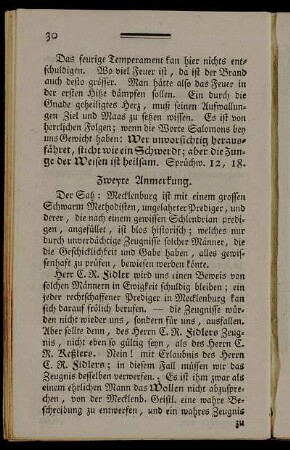 30
Das feurige Temperament kan hier nichts ent-
schuldigen. Wo viel Feuer ist, da ist der Brand
auch desto grösser. Man hätte also das Feuer in
der ersten Hitze dämpfen sollen. Ein durch die
Gnade geheiligtes Herz, muß seinen Aufwallun-
gen Ziel und Maas zu setzen wissen. Es ist von
herrlichen Folgen; wenn die Worte Salomons bey
uns Gewicht haben: Wer unvorsichtig heraus-
fähret, sticht wie ein Schwerdt; aber die Zun-
ge der Weisen ist heilsam. Sprüchw. 12, 18.
Zweyte Anmerkung.
Der Satz: Mecklenburg ist mit einem grossen
Schwarm Methodisten, ungelahrter Prediger, und
derer, die nach einem gewissen Schlendrian predi-
gen, angefüllet, ist blos historisch; welches nur
durch unverdächtige Zeugnisse solcher Männer, die
die Geschicklichkeit und Gabe haben, alles gewis-
senhaft zu prüfen, bewiesen werden könte.
Herr C. R. Fidler wird uns einen Beweis von
solchen Männern in Ewigkeit schuldig bleiben; ein
jeder rechtschaffener Prediger in Mecklenburg kan
sich darauf frölich berufen. — die Zeugnisse wür-
den nicht wieder uns, sondern für uns, ausfallen.
Aber sollte denn, des Herrn C. R. Fidlers Zeug-
nis, nicht eben so gültig seyn, als des Herrn C.
R. Keßlers. Nein! mit Erlaubnis des Herrn
C. R. Fidlers; in diesem Fall müssen wir das
Zeugnis desselben verwerfen. Es ist ihm zwar als
einem ehrlichen Mann das Wollen nicht abzuspre-
chen, von der Mecklenb. Geistl. eine wahre Be-
schreibung zu entwerfen, und ein wahres Zeugnis
zu